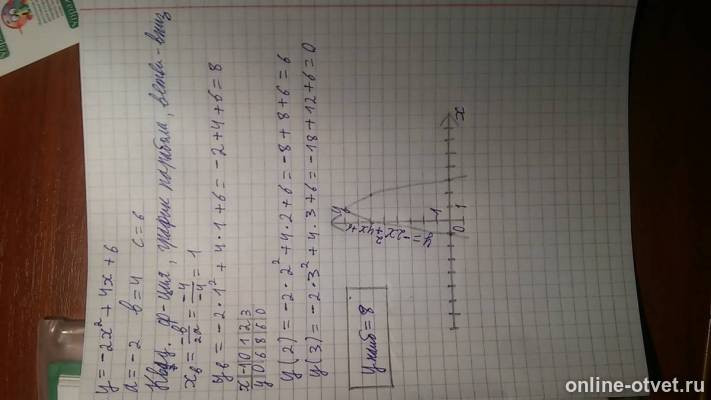 y = -2x² + 4x + 6
a = -2 b = 4 c = 6
Квад. ф-ция, график парабола, ветви - вниз
xв = -b/2a = -4/-4 = 1
yв = -2·1² + 4·1 + 6 = -2 + 4 + 6 = 8
x|-1|0|1|2|3
y|0|6|8|6|0
y(2) = -2·2² + 4·2 + 6 = -8 + 8 + 6 = 6
y(3) = -2·3² + 4·3 + 6 = -18 + 12 + 6 = 0
y
y = -2x² + 4x + 6
1
0 1
x
y наиб = 8
online-otvet.ru